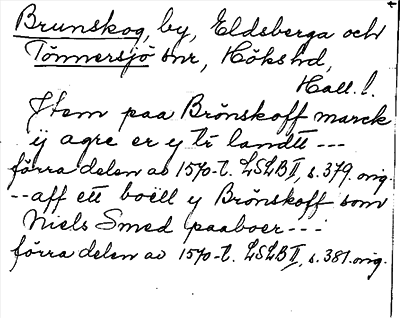 Brunskog, by, Eldsberga och
Tönnersjö snr, Hökshd,
Hall. l.
Jtem paa Brönskoff marck
ij agre er y tr landtt ---
förra delen av 1570-t. LSLB II, s. 379. orig.
-- aff ett boëll y Brönskoff som
Niels Smed paaboer ---
förra delen av 1570-t. LSLB II, s. 381. orig.